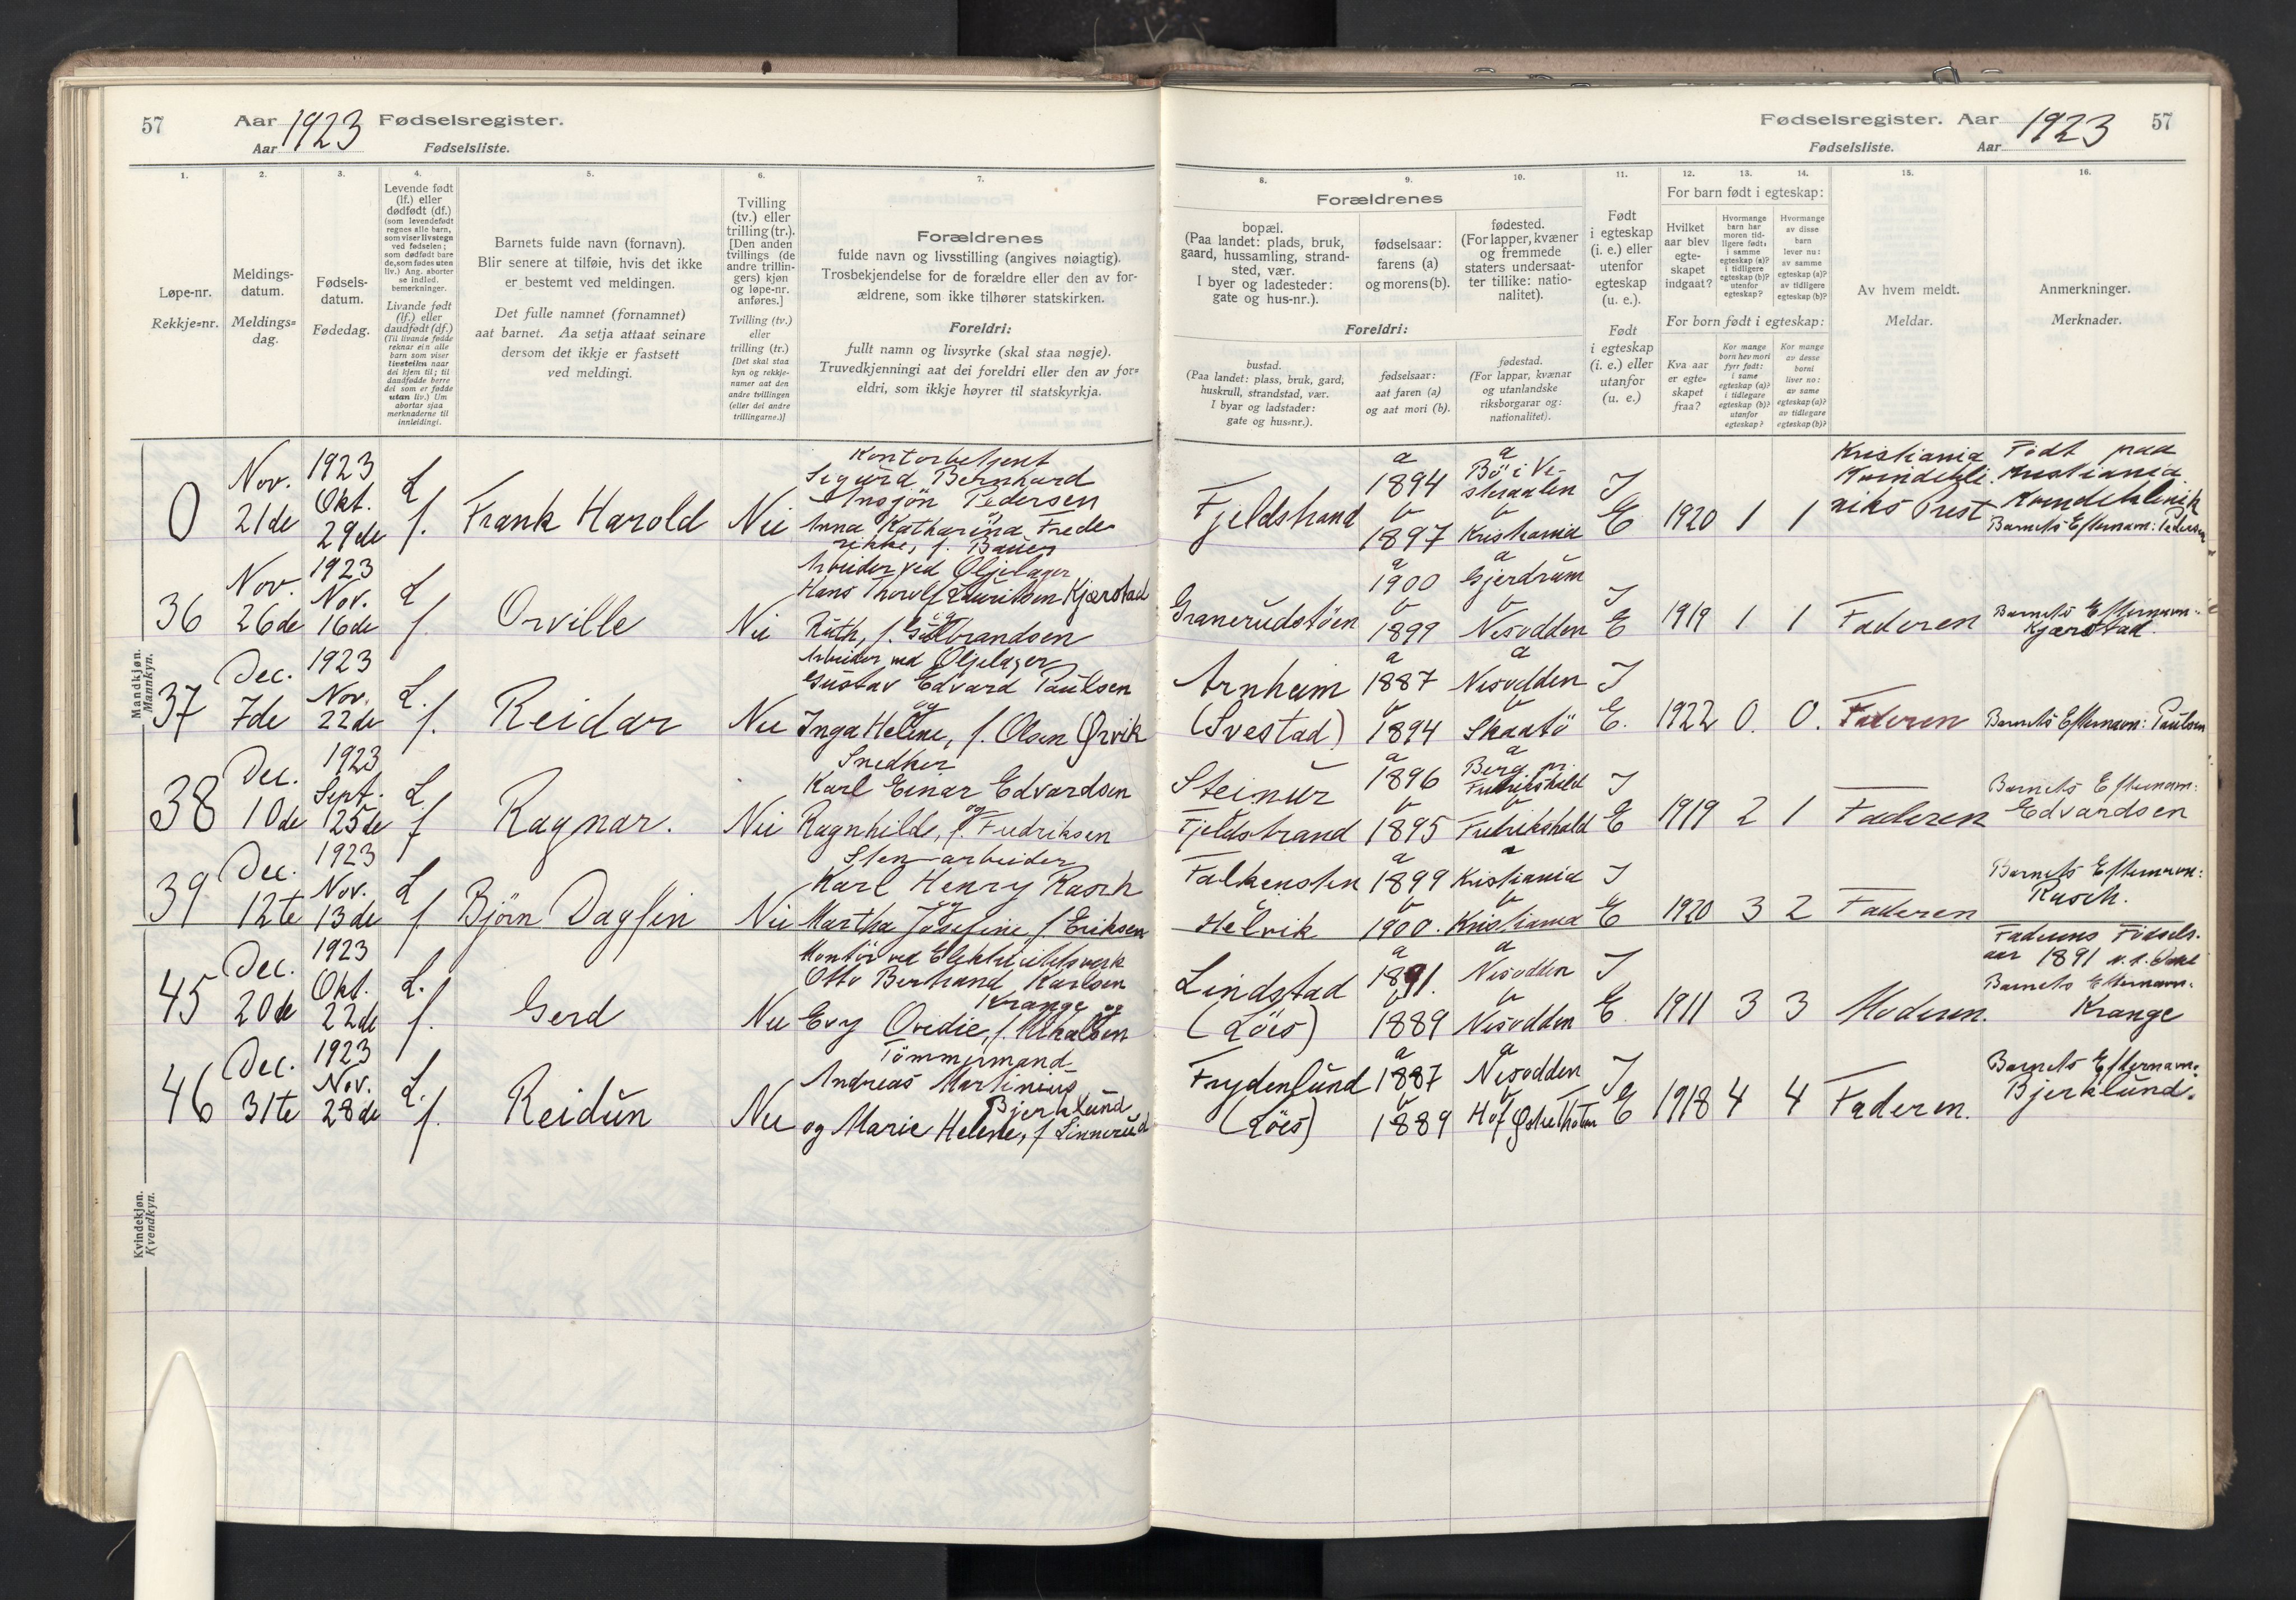 57 Aar 1923 Fødselsregister.
Aar Fødselsliste.
1.
Løpe-nr.
Rekkje=nr.
2.
Meldings-
datum.
Meldings=
dag.
3.
Fødsels-
datum.
Fødedag.
4.
Levende født
(lf.) eller
dødfødt (df.)
(som levendefødt
regnes alle barn,
som viser livstegn
ved fødselen;
som dødfødt bare
de, som fødes uten
liv.) Ang. aborter
se indled.
bemerkninger.
Livande født
(lf.) eller
daudfødt (df.)
(Til livande fødde
reknar ein alle
barn som viser
livsteikn naar
dei kjem til; til
daudfødde berre
dei som er fødde
utan liv.) Um
abortar sjaa
merknaderne til
innleidingi.
5.
Barnets fulde navn (fornavn).
Blir senere at tilføie, hvis det ikke
er bestemt ved meldingen.
Det fulle namnet (fornamnet)
aat barnet. Aa setja attaat seinare
dersom det ikkje er fastsett
ved meldingi.
6.
Tvilling
(tv.) eller
trilling (tr.).
[Den anden
tvillings (de
andre trillin-
gers) kjøn
og løpe-nr.
anføres.]
Tvilling (tv.)
eller
trilling (tr.)
[Det skal staa
kyn og rekkje-
numer aat den
andre tvillingen
(eller dei andre
trillingarne.)]
7.
Forældrenes
fulde navn og livsstilling (angives nøiagtig).
Trosbekjendelse for de forældre eller den av for-
ældrene, som ikke tilhører statskirken.
Foreldri:
fullt namn og livsyrke (skal staa nøgje).
Truvedkjenningi aat dei foreldri eller den av for=
eldri, som ikkje høyrer til statskyrkja.
Mandkjøn.
Mannkyn.
0
Nov.
21de
1923
Okt.
29de
L
f.
Frank Harold
Nei
Kontorbetjent
Sigurd Bernhard
Ansjön Pedersen
og
Anna Katharina Frede-
rikke, f. Bauer
36
Nov.
26de
1923
Nov.
16de
L
f.
Orville
Nei
Arbeider ved Oljelager
Hans Thorolf Lauritsen Kjærstad
og
Ruth, f. Gulbrandsen
37
Dec.
7de
1923
Nov.
22de
L.
f.
Reidar
Nei
Arbeider ved Oljelager
Gustav Edvard Paulsen
og
Inga Helene, f. Olsen Ørvik
38
Dec.
10de
1923
Sept.
25de
L.
f
Ragnar.
Nei
Snedker
Karl Einar Edvardsen
og
Ragnhilde, f. Fredriksen
39
Dec.
12te
1923
Nov.
13de
L
f.
Björn Dagfin
Nei
Stenarbeider
Karl Henry Rasch
og
Martha Josefine f Eriksen
Kvindekjøn.
Kvendkyn.
45
Dec.
20de
1923
Okt.
22de
L.
f.
Gerd
Nei
Montör ved Elektricitetsverk
Otto Bertrand Karlsen
Krange og
Evy Ovidie, f.
46
Dec.
31te
1923
Nov.
28de
L.
f.
Reidun
Nei
Tömmermand
Andreas Martinius
Bjerklund
og Marie Helene, f Linnerud
Fødselsregister. Aar 1923 57
Fødselsliste. Aar
8.
Forældrenes
bopæl.
(Paa landet: plads, bruk,
gaard, hussamling, strand-
sted, vær.
I byer og ladesteder:
gate og hus-nr.).
Foreldri:
bustad.
(Paa landet: plass, bruk, gard,
huskrull, strandstad, vær.
I byar og ladstader:
gate og hus=nr.).
9.
fødselsaar:
farens (a)
og morens (b).
fødselsaar:
aat faren (a)
og aat mori (b).
10.
fødested.
(For lapper, kvæner
og fremmede
staters undersaat-
ter tillike: natio-
nalitet).
fødestad.
(For lappar, kvænar
og utanlandske
riksborgarar og:
nationalitet).
11.
Født
i egteskap
(i. e.) eller
utenfor
egteskap
(u. e.).
Født
i egteskap
(i. e.) eller
utanfor
(u. e.)
12. 13. 14.
For barn født i egteskap:
Hvilket
aar blev
egte-
skapet
indgaat?
Hvormange
barn har
moren tid-
ligere født:
i samme
egteskap (a)?
i tidligere
egteskap (b)?
utenfor
egteskap?
Hvormange
av disse
barn
lever nu:
av samme
egteskap (a)?
av tidligere
egteskap (b)?
For born født i egteskap:
Kva aar
er egte=
skapet
fraa?
Kor mange
born hev mori
fyrr født:
i same
egteskap (a)?
i tidlegare
egteskap (b)?
utanfor
egteskap?
Kor mange
av desse
borni
liver no:
av same
egteskap (a)?
av tidlegare
egteskap (b)?
15.
Av hvem meldt.
Meldar.
16.
Anmerkninger.
Merknader.
Fjeldstrand
a
1894
b
1897
a
Bö i Ve-
steraalen
b
Kristiania
I
E
1920
1
1
Kristiania
Kvindekli-
niks Prest
Födt paa
Kristiania
Kvindeklinik
Barnets Efternavn: Pedersen
Granerudstöen
a
1900
b
1899
a
Gjerdrum
b
Nesodden
I
E
1919
1
1
Faderen
Barnets Efternavn:
Kjærstad.
Arnheim
(Svestad)
a
1887
b
1894
a
Nesodden
b
Skaatö
I
E.
1922
0.
0.
Faderen
Barnets Efternavn: Paulsen
Steinur
Fjeldstrand
a
1896
b
1895
a
Berg pr.
Fredrikshald
b
Fredrikshald
I
E
1919
2
1
Faderen
Barnets Efternavn:
Edvardsen
Falkensten
Helvik
a
1899
b
1900.
a
Kristiania
b
Kristiania
I
E
1920
3
2
Faderen
Barnets Efternavn:
Rasch.
Lindstad
(Löes)
a
1891.
b
1889
a
Nesodden
b
Nesodden
I
E.
1911
3
3
Moderen.
Faderens Födsels-
aar 1891
Barnets Efternavn:
Krange
Frydenlund
(Löes)
a
1887
b
1889
a
Nesodden
b
Hof Østre Thoten
I
E
1918
4
4
Faderen.
Barnets Efternavn:
Bjerklund.